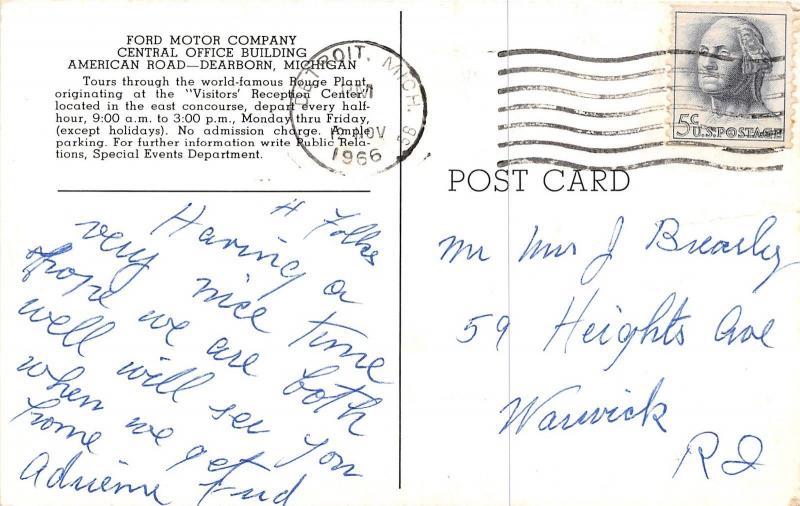 FORD MOTOR COMPANY
CENTRAL OFFICE BUILDING
AMERICAN ROAD—DEARBORN, MICHIGAN
Tours through the world-famous Rouge Plant,
originating at the "Visitors' Reception Center,"
located in the east concourse, depart every half-
hour, 9:00 a.m. to 3:00 p.m., Monday thru Friday,
(except holidays). No admission charge. Ample
parking. For further information write Public Rela-
tions, Special Events Department.
DETROIT, MICH.
NOV
1966
5¢ U.S. POSTAGE
POST CARD
Hi Folks
Having a
very nice time
hope we are both
well will see you
when we get
home
Adrienne
Mr Mrs J Brearley
59 Heights Ave
Warwick
RI